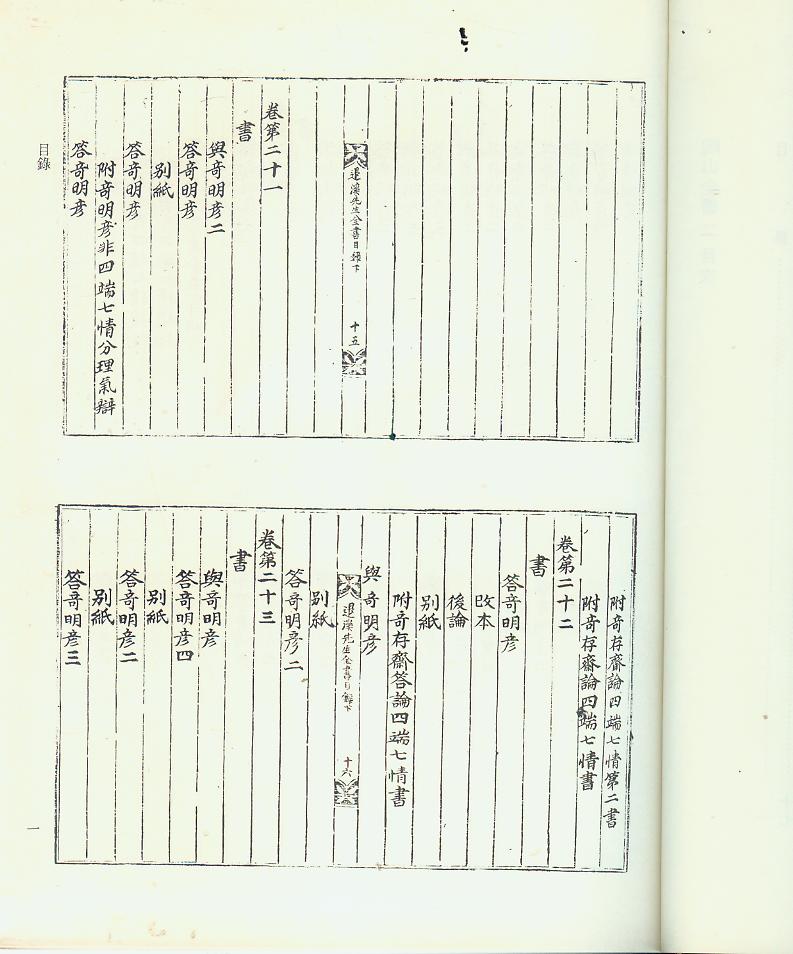 退溪先生全書目錄下
十五
卷第二十一
書
與奇明彦二
答奇明彦
別紙
答奇明彦
附奇明彦非四端七情分理氣辯
答奇明彦
附奇存齋論四端七情第二書
附奇存齋論四端七情書
卷第二十二
書
答奇明彦
改本
後論
別紙
附奇存齋答論四端七情書
與奇明彦
退溪先生全書目錄下
十六
別紙
答奇明彦二
卷第二十三
書
與奇明彦
答奇明彦四
別紙
答奇明彦二
別紙
答奇明彦三
目錄
一